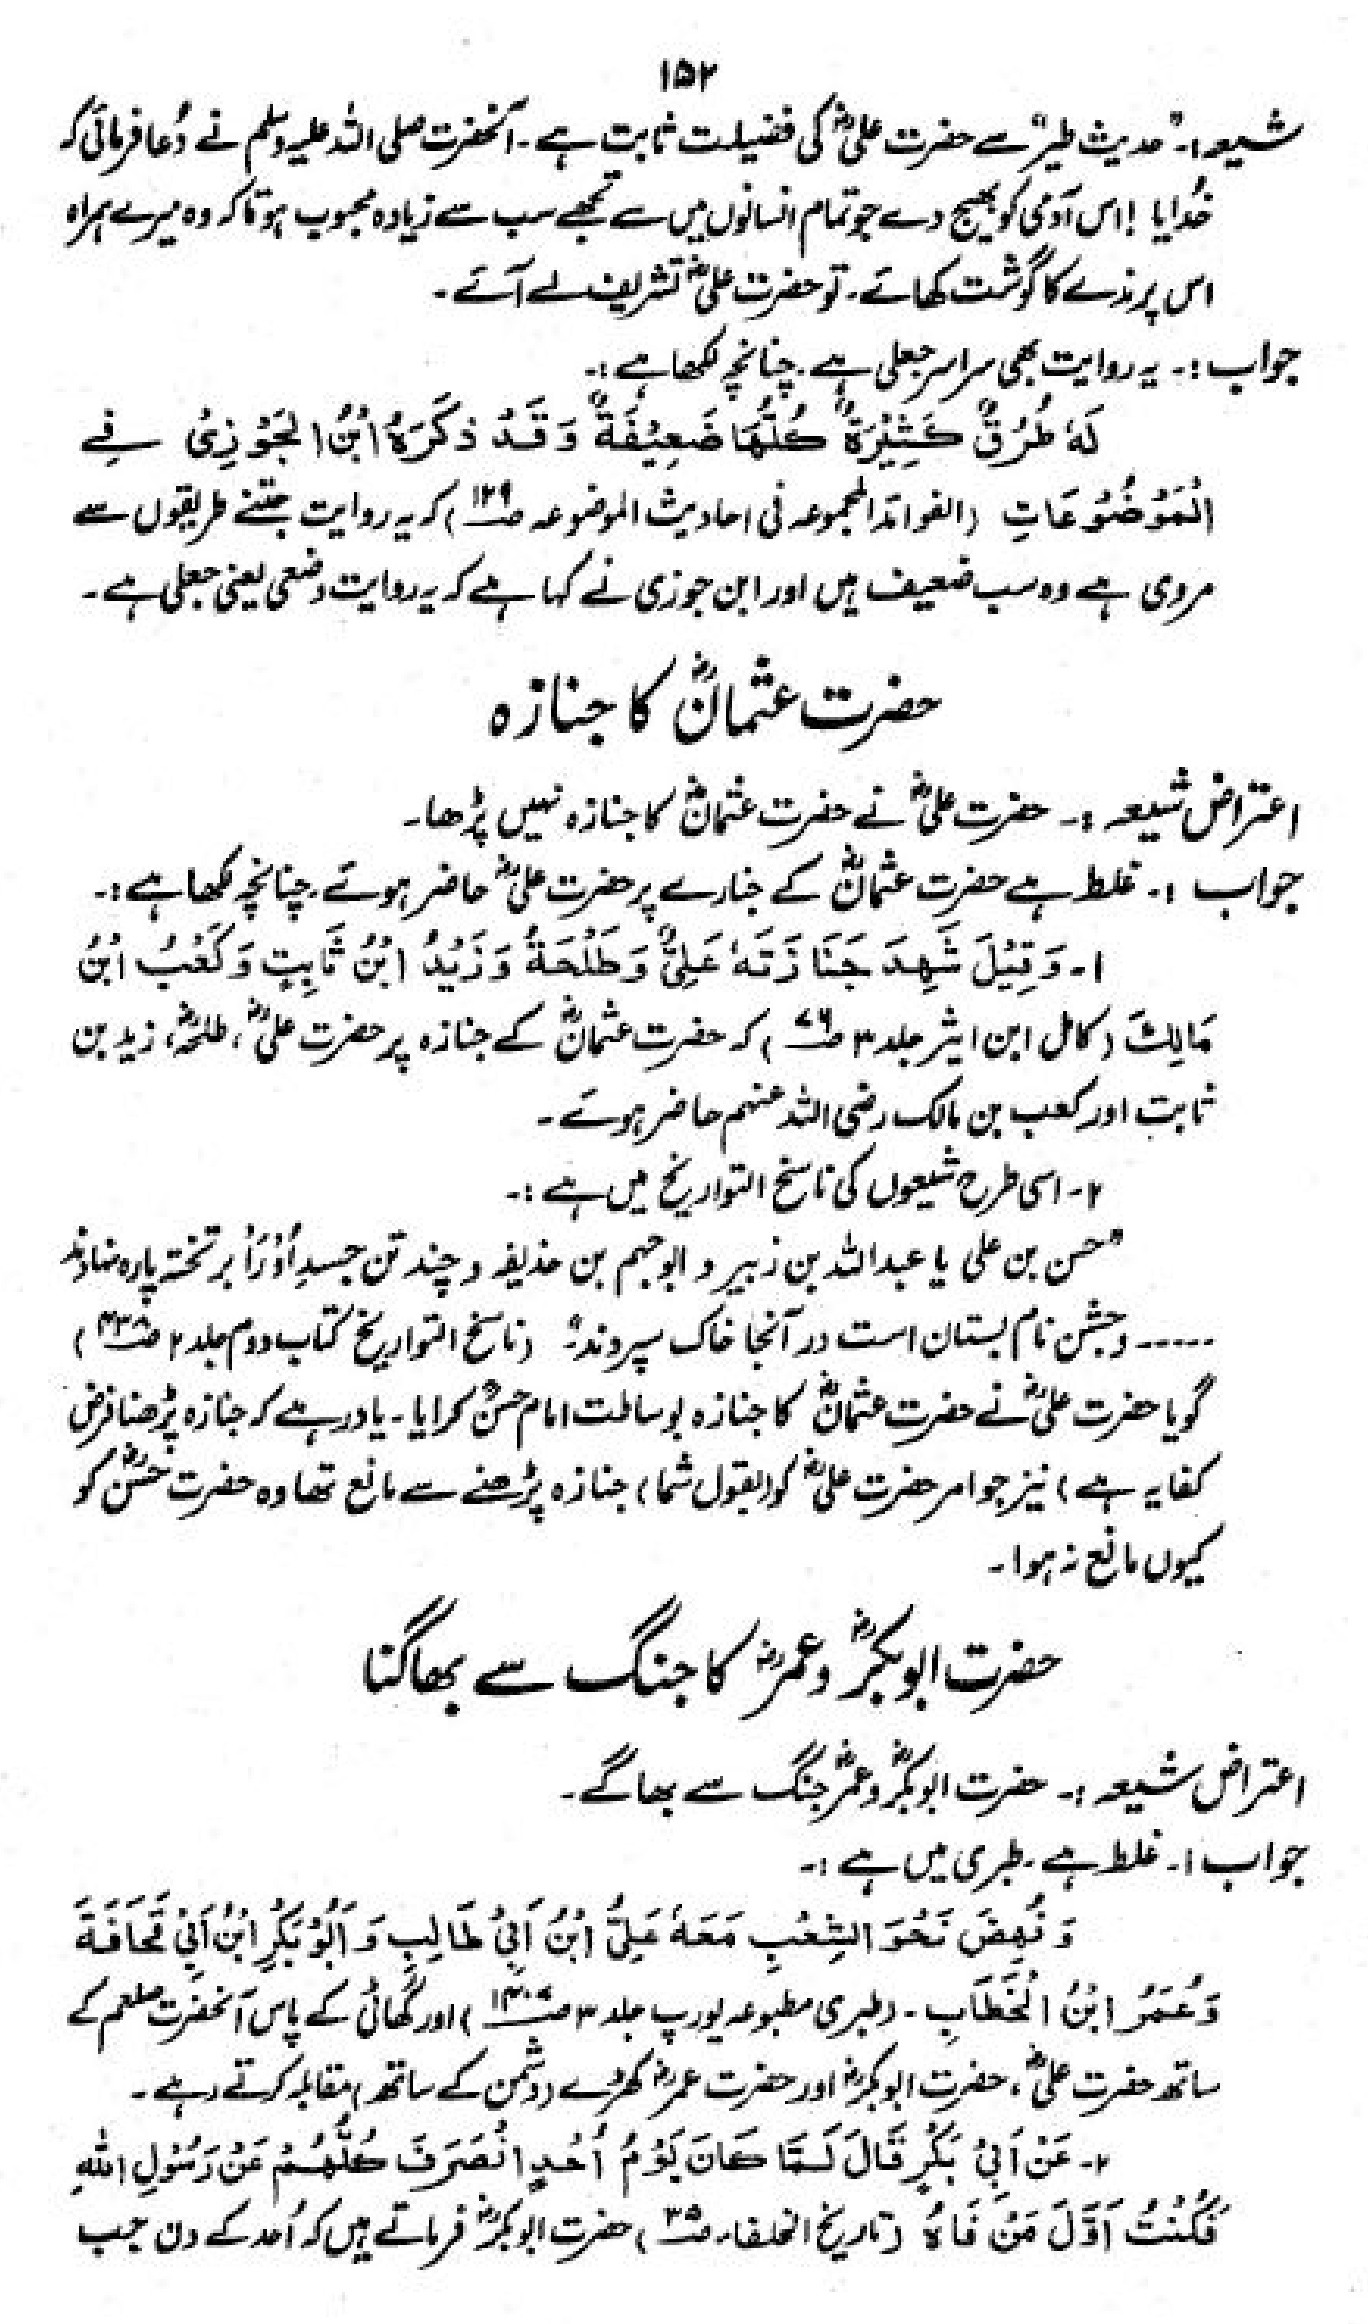 ۱۵۲
شیعہ:۔ "حدیث طیر" سے حضرت علیؓ کی فضیلت ثابت ہے۔ آنحضرت صلی اللہ علیہ وسلم نے دُعا فرمائی کہ
خُدایا! اس آدمی کو بھیج دے جو تمام انسانوں میں سے تجھے سب سے زیادہ محبوب ہو تاکہ وہ میرے ہمراہ
اس پرندے کا گوشت کھائے۔ تو حضرت علیؓ تشریف لے آئے۔
جواب:۔ یہ روایت بھی سراسر جعلی ہے۔ چنانچہ لکھا ہے:۔
لَہٗ طُرُقٌ کَثِیْرَۃٌ کُلُّهَا ضَعِیْفَۃٌ وَقَدْ ذَکَرَہُ ابْنُ الْجَوْزِیْ فِی
الْمَوْضُوْعَاتِ (الفوائد المجموعہ فی احادیث الموضوعہ ص۱۲۹) کہ یہ روایت جتنے طریقوں سے
مروی ہے وہ سب ضعیف ہیں اور ابن جوزی نے کہا ہے کہ یہ روایت وضعی یعنی جعلی ہے۔
حضرت عثمانؓ کا جنازہ
اعتراض شیعہ:۔ حضرت علیؓ نے حضرت عثمانؓ کا جنازہ نہیں پڑھا۔
جواب:۔ غلط ہے حضرت عثمانؓ کے جنازے پر حضرت علیؓ حاضر ہوئے۔ چنانچہ لکھا ہے:۔
۱۔ وَقِیْلَ شَهِدَ جَنَازَتَہٗ عَلِیٌّ وَطَلْحَۃُ وَزَیْدُ ابْنُ ثَابِتٍ وَکَعْبُ ابْنُ
مَالِکَ (کامل ابن اثیر جلد ۳ ص۷۶) کہ حضرت عثمانؓ کے جنازہ پر حضرت علیؓ، طلحہؓ، زید بن
ثابت اور کعب بن مالک رضی اللہ عنہم حاضر ہوئے۔
۲۔ اسی طرح شیعوں کی ناسخ التواریخ میں ہے:۔
"حسن بن علی یا عبداللہ بن زبیر و ابوجہم بن حذیفہ و چند تن جسدِ اُوْرَا بر تختہ پارہ نہادند
۔۔۔۔۔ وحشن نام بستان است در آنجا خاک سپردند" (ناسخ التواریخ کتاب دوم جلد ۲ ص۴۳۸)
گویا حضرت علیؓ نے حضرت عثمانؓ کا جنازہ بوساطت امام حسنؓ کرایا۔ یاد رہے کہ جنازہ پڑھنا فرض
کفایہ ہے) نیز جو امر حضرت علیؓ کو (بقول شما) جنازہ پڑھنے سے مانع تھا وہ حضرت حسنؓ کو
کیوں مانع نہ ہوا۔
حضرت ابوبکرؓ و عمرؓ کا جنگ سے بھاگنا
اعتراض شیعہ:۔ حضرت ابوبکرؓ و عمرؓ جنگ سے بھاگے۔
جواب:۔ غلط ہے۔ طبری میں ہے:۔
وَنُهِضَ نَحْوَ الشِّعْبِ مَعَہٗ عَلِیُّ ابْنُ اَبِیْ طَالِبٍ وَ اَبُوْبَکْرِ ابْنُ اَبِیْ قُحَافَۃَ
وَعُمَرُ ابْنُ الْخَطَابِ۔ (طبری مطبوعہ یورپ جلد ۳ ص) اور گھاٹی کے پاس آنحضرت صلعم کے
ساتھ حضرت علیؓ، حضرت ابوبکرؓ اور حضرت عمرؓ کھڑے (دشمن کے ساتھ) مقابلہ کرتے رہے۔
۲۔ عَنْ اَبِیْ بَکْرٍ قَالَ لَمَّا کَانَ یَوْمُ اُحُدٍ اِنْصَرَفَ کُلُّهُمْ عَنْ رَسُوْلِ اللّٰہِ
فَکُنْتُ اَوَّلَ مَنْ فَاءَ (تاریخ الخلفاء ص۳۵) حضرت ابوبکرؓ فرماتے ہیں کہ اُحد کے دن جب